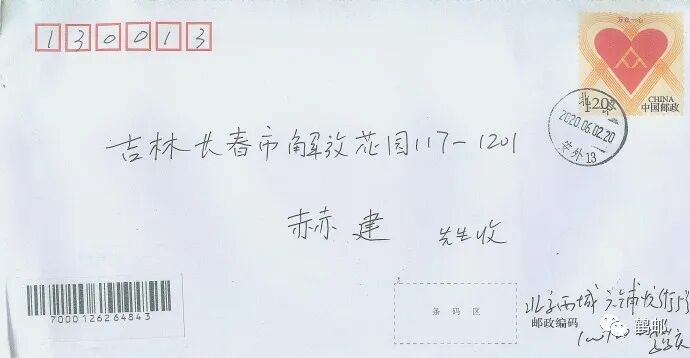 130013
万众一心
1.20元
CHINA
中国邮政
北京
2020.06.02.20
安外13
吉林长春市解放花园117-1201
赫建 先生收
7000126264843
条码区
北京西城
邮政编码
鹤邮